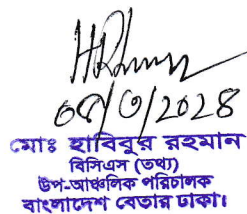 মোঃ হাবিবুর রহমান
বিসিএস (তথ্য)
উপ-আঞ্চলিক পরিচালক
বাংলাদেশ বেতার ঢাকা।